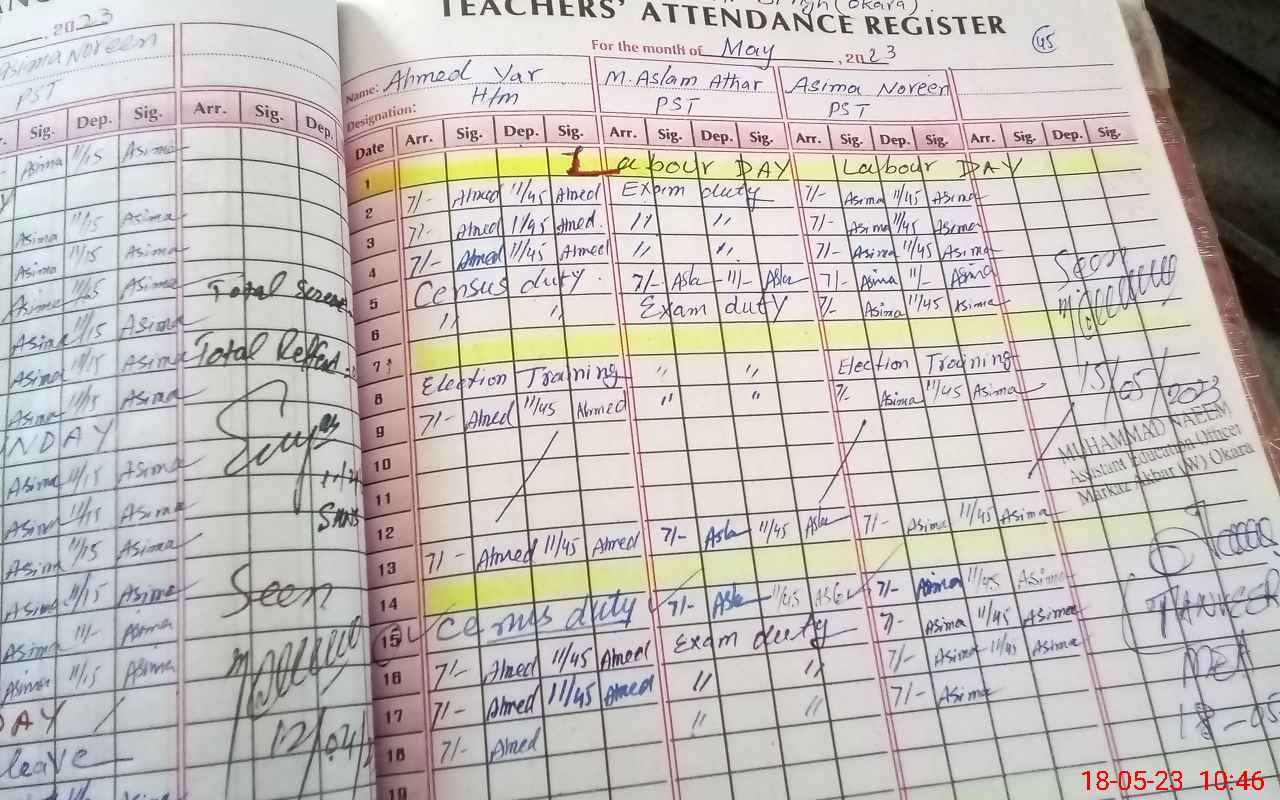 (Okara)
TEACHERS' ATTENDANCE REGISTER
For the month of May, 2023
45
Name: Ahmed Yar M. Aslam Athar Asima Noreen
Designation: H/m PST PST
Date Arr. Sig. Dep. Sig. Arr. Sig. Dep. Sig. Arr. Sig. Dep. Sig. Arr. Sig. Dep. Sig.
1 Labour DAY Labour DAY
2 7/- Ahmed 11/45 Ahmed Exam duty 7/- Asima 11/45 Asima
3 7/- Ahmed 11/45 Ahmed " " 7/- Asima 11/45 Asima
4 7/- Ahmed 11/45 Ahmed " " 7/- Asima 11/45 Asima
5 Census duty 7/- Asla 11/- Asla 7/- Asima 11/- Asima
6 " " Exam duty 7/- Asima 11/45 Asima
7
8 Election Training " " Election Training
9 7/- Ahmed 11/45 Ahmed " " 7/- Asima 11/45 Asima
10
11
12
13 7/- Ahmed 11/45 Ahmed 7/- Asla 11/45 Asla 7/- Asima 11/45 Asima
14
15 Census duty 7/- Asla 11/45 Asla 7/- Asima 11/45 Asima
16 7/- Ahmed 11/45 Ahmed Exam duty 7/- Asima 11/45 Asima
17 7/- Ahmed 11/45 Ahmed " " 7/- Asima 11/45 Asima
18 7/- Ahmed " " 7/- Asima
19
Seen
15/05/2023
MUHAMMAD NAEEM
Assistant Education Officer
Markaz Akbar (W) Okara
TANVEER
MEA
18-05
, 2023
Asima Noreen
PST
Sig. Dep. Sig. Arr. Sig. Dep.
Asima 11/15 Asima
Asima 11/15 Asima
Asima 11/15 Asima
Asima 11/15 Asima
Total
Asima 11/15 Asima
Total
Asima 11/15 Asima
Asima 11/15 Asima
NDAY
Asima 11/15 Asima
Asima 11/15 Asima
11/15 Asima
Asima 11/15 Asima
Seen
Asima 11/- Asima
Asima 11/15 Asima
DAY
12/04/
leave
18-05-23 10:46